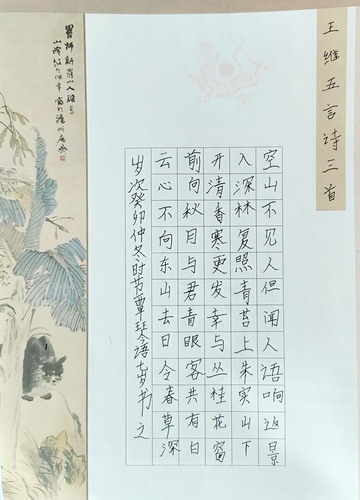 王维五言诗三首
空山不见人但闻人语响返景
入深林复照青苔上朱实山下
开清香寒更发幸与丛桂花窗
前向秋月与君青眼客共有白
云心不向东山去日令春草深
岁次癸卯仲冬时节覃琴语七岁书之